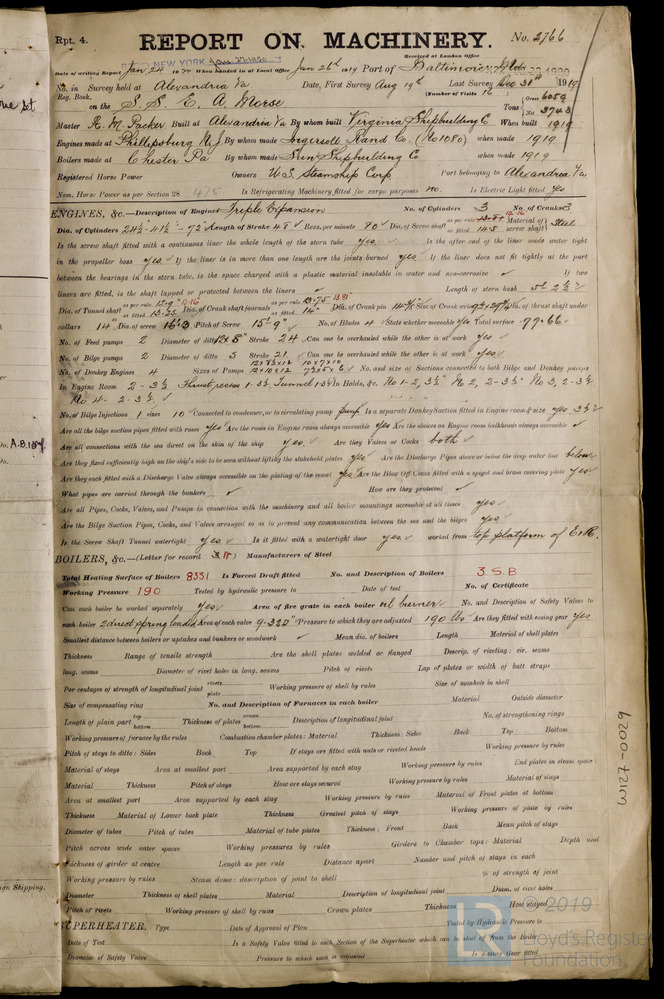 Rpt. 4.
REPORT ON MACHINERY. No. 2766
Received at London Office
NEW YORK Jan 27 1920
Date of writing Report Jan 24 1920 When handed in at Local Office Jan 26th 1919 Port of Baltimore Md.
No. in Survey held at Alexandria Va Date, First Survey Aug 19th Last Survey Dec 31st 1919
Reg. Book. (Number of Visits 16)
on the S.S. E. A. Morse Tons Gross 6059 Net 3743
Master R. M. Packer Built at Alexandria Va By whom built Virginia Shipbuilding Co When built 1919
Engines made at Phillipsburg N.J. By whom made Ingersoll Rand Co. (No 1080) when made 1919
Boilers made at Chester Pa By whom made Sun Shipbuilding Co when made 1919
Registered Horse Power Owners U.S. Steamship Corp Port belonging to Alexandria Va
Nom. Horse Power as per Section 28 475 Is Refrigerating Machinery fitted for cargo purposes no. Is Electric Light fitted yes
ENGINES, &c.—Description of Engines Triple Expansion No. of Cylinders 3 No. of Cranks 3
Dia. of Cylinders 24½ - 41½ - 72" Length of Stroke 48" Revs. per minute 80 Dia. of Screw shaft as per rule as fitted 14.5 Material of screw shaft Steel
Is the screw shaft fitted with a continuous liner the whole length of the stern tube yes. Is the after end of the liner made water tight
in the propeller boss yes If the liner is in more than one length are the joints burned yes If the liner does not fit tightly at the part
between the bearings in the stern tube, is the space charged with a plastic material insoluble in water and non-corrosive ✓ If two
liners are fitted, is the shaft lapped or protected between the liners ✓ Length of stern bush 5ft 2⅞"
Dia. of Tunnel shaft as per rule 12.9" as fitted 13.25 Dia. of Crank shaft journals as per rule 13.75 as fitted 14" Dia. of Crank pin 14½ Size of Crank webs Dia. of thrust shaft under
collars 14 Dia. of screw 16.3 Pitch of Screw 15-9" No. of Blades 4 State whether moveable yes Total surface 77.66
No. of Feed pumps 2 Diameter of ditto 12x8" Stroke 24 Can one be overhauled while the other is at work yes
No. of Bilge pumps 2 Diameter of ditto 5 Stroke 21 Can one be overhauled while the other is at work yes
No. of Donkey Engines 4 Sizes of Pumps 12x10x12 No. and size of Suctions connected to both Bilge and Donkey pumps
In Engine Room 2-3½ Thrust recess 1-3½ Tunnel 1-3½ In Holds, &c. No 1-2, 3½" No 2, 2-3½" No 3, 2-3½
No 4- 2-3½
No. of Bilge Injections 1 sizes 10 Connected to condenser, or to circulating pump pump Is a separate Donkey Suction fitted in Engine room & size yes 3½"
Are all the bilge suction pipes fitted with roses yes Are the roses in Engine room always accessible yes Are the sluices on Engine room bulkheads always accessible ✓
Are all connections with the sea direct on the skin of the ship yes. Are they Valves or Cocks both
Are they fixed sufficiently high on the ship's side to be seen without lifting the stokehold plates yes Are the Discharge Pipes above or below the deep water line below
Are they each fitted with a Discharge Valve always accessible on the plating of the vessel yes Are the Blow Off Cocks fitted with a spigot and brass covering plate yes
What pipes are carried through the bunkers ✓ How are they protected ✓
Are all Pipes, Cocks, Valves, and Pumps in connection with the machinery and all boiler mountings accessible at all times yes
Are the Bilge Suction Pipes, Cocks, and Valves arranged so as to prevent any communication between the sea and the bilges yes
Is the Screw Shaft Tunnel watertight yes Is it fitted with a watertight door yes worked from top platform of E.R.
BOILERS, &c.—(Letter for record) Manufacturers of Steel
Total Heating Surface of Boilers 8331 Is Forced Draft fitted No. and Description of Boilers 3 S.B
Working Pressure 190 Tested by hydraulic pressure to Date of test No. of Certificate
Can each boiler be worked separately yes Area of fire grate in each boiler oil burner No. and Description of Safety Valves to
each boiler 2 direct spring loaded Area of each valve 9.320" Pressure to which they are adjusted 190 lbs Are they fitted with easing gear yes
Smallest distance between boilers or uptakes and bunkers or woodwork ✓ Mean dia. of boilers Length Material of shell plates
Thickness Range of tensile strength Are the shell plates welded or flanged Descrip. of riveting: cir. seams
long. seams Diameter of rivet holes in long. seams Pitch of rivets Lap of plates or width of butt straps
Per centages of strength of longitudinal joint rivets plate Working pressure of shell by rules Size of manhole in shell
Size of compensating ring No. and Description of Furnaces in each boiler Material Outside diameter
Length of plain part top bottom Thickness of plates crown bottom Description of longitudinal joint No. of strengthening rings
Working pressure of furnace by the rules Combustion chamber plates: Material Thickness: Sides Back Top Bottom
Pitch of stays to ditto: Sides Back Top If stays are fitted with nuts or riveted heads Working pressure by rules
Material of stays Area at smallest part Area supported by each stay Working pressure by rules End plates in steam space:
Material Thickness Pitch of stays How are stays secured Working pressure by rules Material of stays
Area at smallest part Area supported by each stay Working pressure by rules Material of Front plates at bottom
Thickness Material of Lower back plate Thickness Greatest pitch of stays Working pressure of plate by rules
Diameter of tubes Pitch of tubes Material of tube plates Thickness: Front Back Mean pitch of stays
Pitch across wide water spaces Working pressures by rules Girders to Chamber tops: Material Depth and
thickness of girder at centre Length as per rule Distance apart Number and pitch of stays in each
Working pressure by rules Steam dome: description of joint to shell % of strength of joint
Diameter Thickness of shell plates Material Description of longitudinal joint Diam. of rivet holes
Pitch of rivets Working pressure of shell by rules Crown plates Thickness How stayed
SUPERHEATER. Type Date of Approval of Plan Tested by Hydraulic Pressure to
Date of Test Is a Safety Valve fitted to each Section of the Superheater which can be shut off from the Boiler
Diameter of Safety Valve Pressure to which each is adjusted Is Easing Gear fitted
W127-0029
ign Shipping.
LR
© 2019
Lloyd's Register
Foundation